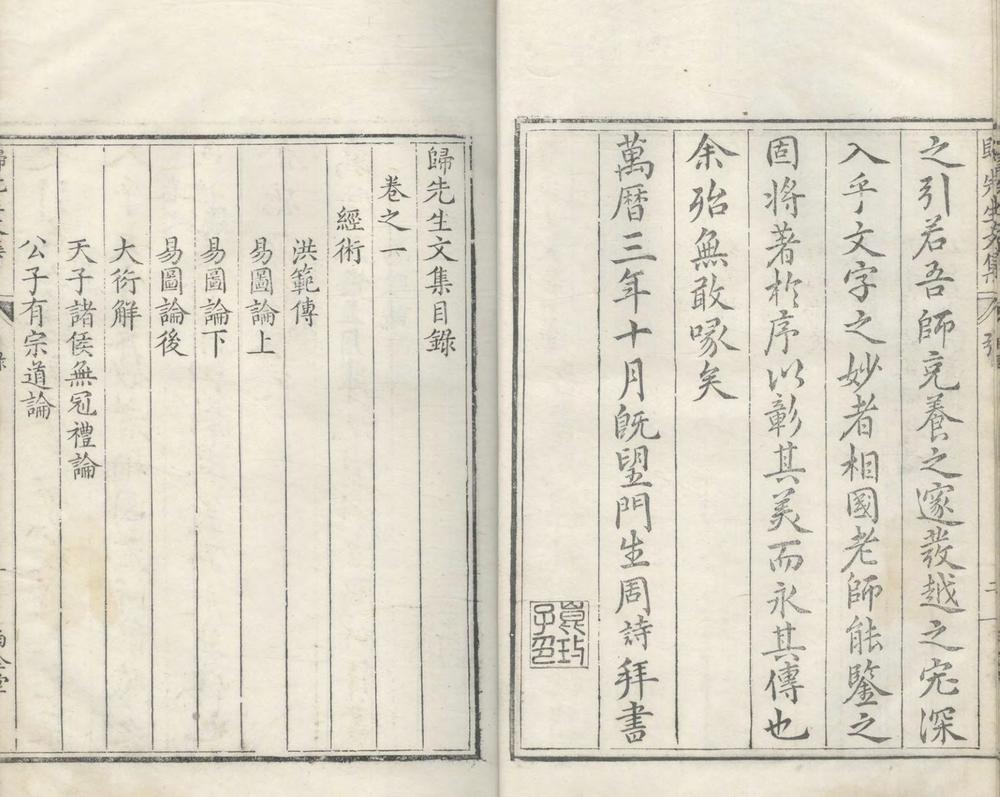 之引若吾師充養之邃發越之宏深
入乎文字之妙者相國老師能鑒之
固将著於序以彰其美而永其傳也
余殆無敢啄矣
萬曆三年十月既望門生周詩拜書
歸先生文集目録
卷之一
經術
洪範傳
易圖論上
易圖論下
易圖論後
大衍解
天子諸侯無冠禮論
公子有宗道論